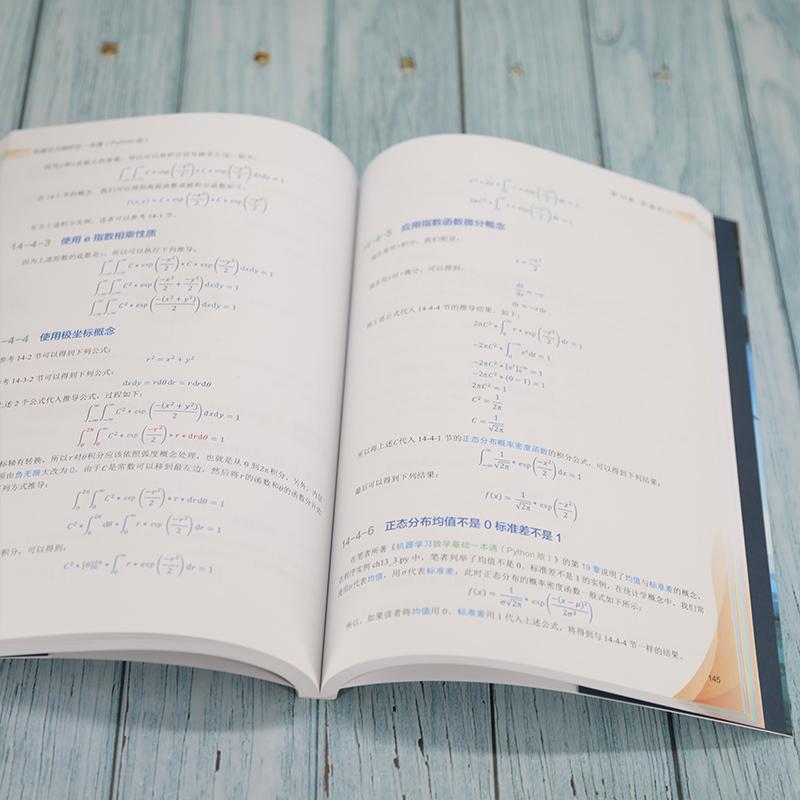 机器学习微积分一本通（Python 版）
∫_{-∞}^{∞} ∫_{-∞}^{∞} C * exp(-x²/2) * C * exp(-y²/2) dxdy = 1
在 14-1 节的概念，我们可以得到两函数或被积分函数如下：
f(x,y) = C * exp(-x²/2) * C * exp(-y²/2)
有关上述积分实例，读者可以参考 14-1 节。
14-4-3 使用 e 指数相乘性质
因为上述指数的底数是 e，所以可以执行下列推导：
∫_{-∞}^{∞} ∫_{-∞}^{∞} C * exp(-x²/2) * C * exp(-y²/2) dxdy = 1
∫_{-∞}^{∞} ∫_{-∞}^{∞} C² * exp(-x²/2 + -y²/2) dxdy = 1
∫_{-∞}^{∞} ∫_{-∞}^{∞} C² * exp(-(x² + y²)/2) dxdy = 1
4-4 使用极坐标概念
参考 14-2 节可以得到下列公式：
r² = x² + y²
考 14-3-2 节可以得到下列公式：
dxdy = rdθdr = rdrdθ
上述 2 个公式代入推导公式，过程如下：
∫_{-∞}^{∞} ∫_{-∞}^{∞} C² * exp(-(x² + y²)/2) dxdy = 1
∫_0^{2π} ∫_0^{∞} C² * exp(-r²/2) * r * drdθ = 1
标轴有转换，所以 r 对 θ 积分应该依照弧度概念处理，也就是从 0 到 2π 积分，另外，内层
须由负无限大改为 0。由于 C 是常数可以移到最左边，然后将 r 的函数和 θ 的函数分开处
下列方式推导：
∫_0^{2π} ∫_0^{∞} C² * exp(-r²/2) * r * drdθ = 1
C² * ∫_0^{2π} dθ * ∫_0^{∞} r * exp(-r²/2) dr = 1
积分，可以得到：
C² * [θ]_0^{2π} * ∫_0^{∞} r * exp(-r²/2) dr = 1
C² * 2π * ∫_0^{∞} r * exp(-r²/2) dr = 1
2πC² * ∫_0^{∞} r * exp(-r²/2) dr = 1
14-4-5 应用指数函数微分概念
t = -r²/2
dt/dr = -r
dt = -rdr
将上述公式代入 14-4-4 节的推导结果，如下：
2πC² * ∫_0^{∞} r * exp(-r²/2) dr = 1
-2πC² * ∫_0^{-∞} eᵗ dt = 1
-2πC² * [eᵗ]_0^{-∞} = 1
-2πC² * (0 - 1) = 1
2πC² = 1
C² = 1/2π
C = 1/√2π
所以将上述 C 代入 14-4-1 节的正态分布概率密度函数的积分公式，可以得到下列结果：
∫_{-∞}^{∞} 1/√2π * exp(-x²/2) dx = 1
最后可以得到下列结果：
f(x) = 1/√2π * exp(-x²/2)
14-4-6 正态分布均值不是 0 标准差不是 1
在笔者所著《机器学习数学基础一本通（Python 版）》的第 19 章说明了均值与标准差的概念，
在程序实例 ch13_3.py 中，笔者列举了均值不是 0、标准差不是 1 的实例，在统计学概念中，我们常
使用 μ 代表均值，用 σ 代表标准差，此时正态分布的概率密度函数一般式如下所示：
f(x) = 1/σ√2π * exp(-(x - μ)²/2σ²)
所以，如果读者将均值用 0、标准差用 1 代入上述公式，将得到与 14-4-4 节一样的结果。
145